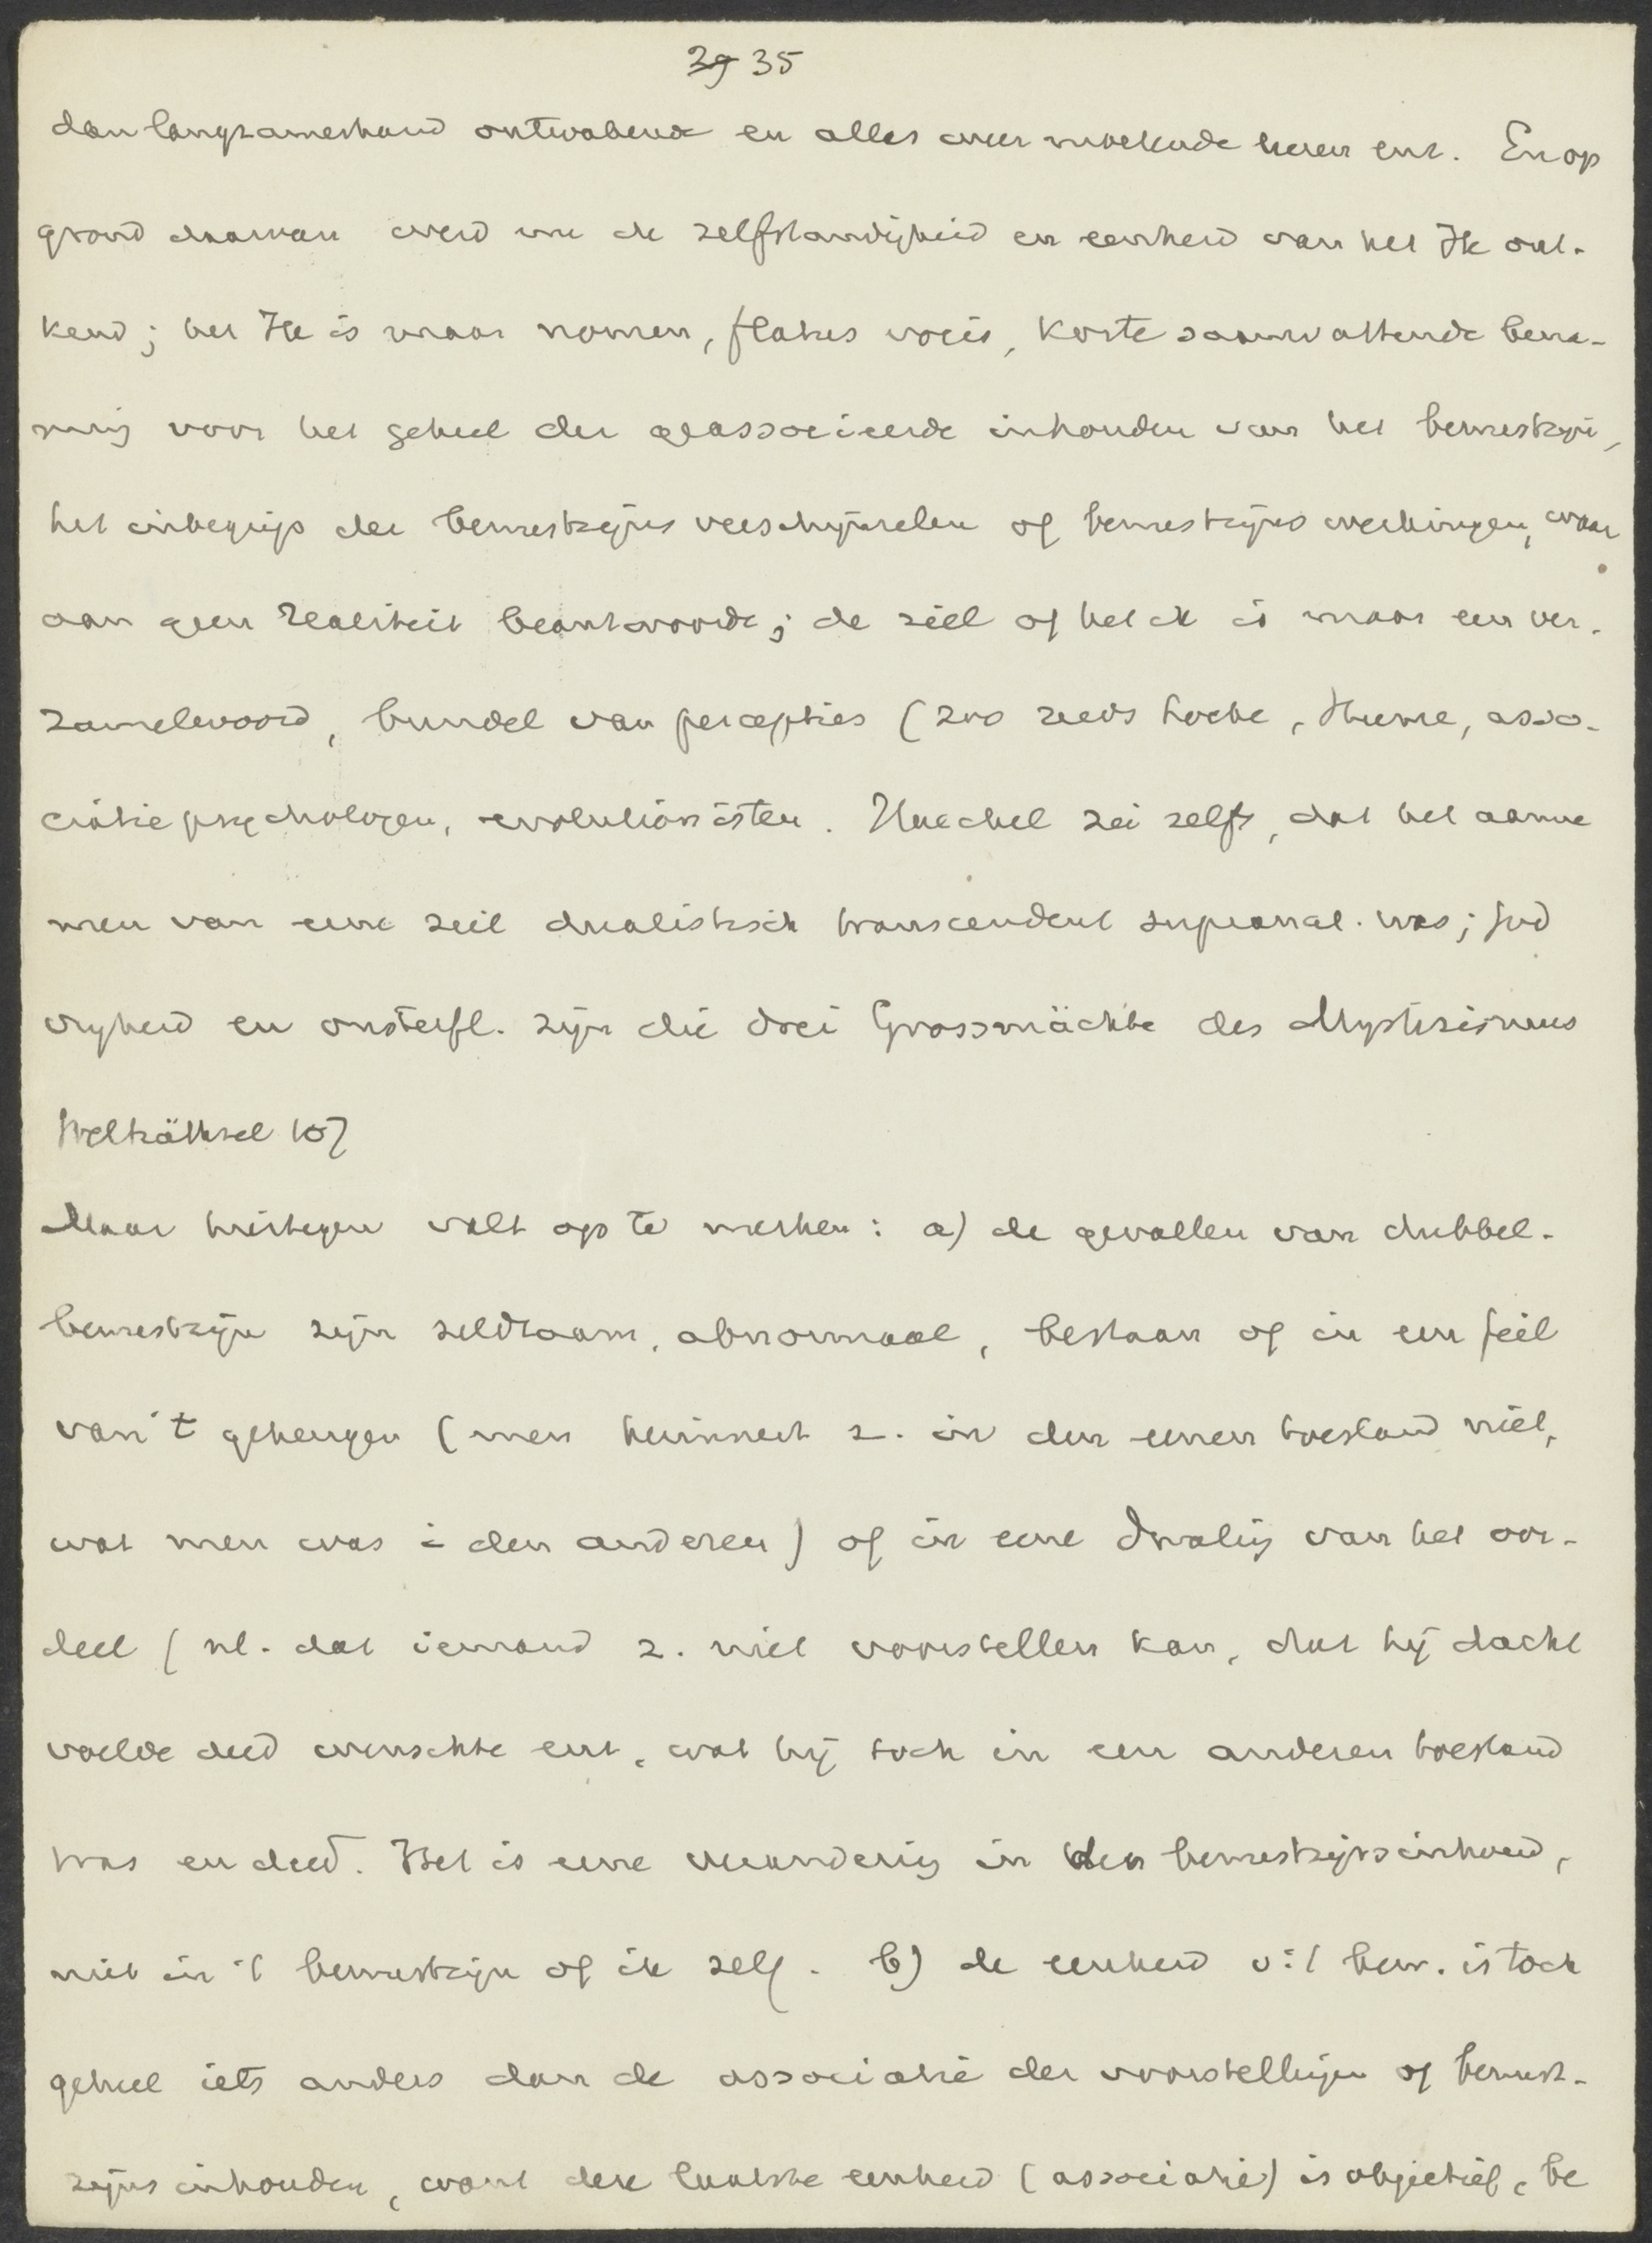 39 35
dan langzamerhand ontwakend en alles weer moetende leeren enz. En op
grond daarvan werd nu de zelfstandigheid en eenheid van het Ik ont-
kend; het Ik is maar nomen, flatus vocis, korte saamvattende bena-
ming voor het geheel der geassocieerde inhouden van het bewustzijn,
het inbegrip der bewustzijnsverschijnselen of bewustzijnswerkingen, waar
aan geen realiteit beantwoordt; de ziel of het ik is maar een ver-
zamelwoord, bundel van percepties (zoo reeds Locke, Hume, asso-
ciatiepsychologen, evolutionisten. Haeckel zei zelfs, dat het aanne
men van eene ziel dualistisch transcendent supranat. was; God
vrijheid en onsterfl. zijn die drei Grossmächte des Mystizismus
Welträthsel 107
Maar hiertegen valt op te merken: a) de gevallen van dubbel-
bewustzijn zijn zeldzaam, abnormaal, bestaan of in een feil
van 't geheugen (men herinnert z. in den eenen toestand niet,
wat men was i den anderen) of in eene dwaling van het oor-
deel (nl. dat iemand z. niet voorstellen kan, dat hij dacht
voelde deed wenschte enz., wat hij toch in een anderen toestand
was en deed. Het is eene verandering in den bewustzijnsinhoud,
niet in 't bewustzijn of ik zelf. b) de eenheid v. 't bew. is toch
geheel iets anders dan de associatie der voorstellingen of bewust-
zijnsinhouden, want deze laatste eenheid (associatie) is objectief, be